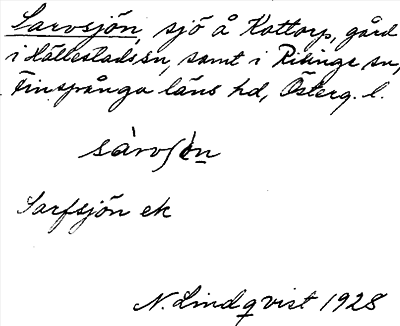 Sarvsjön sjö å Kattorp, gård
i Hällestads sn, samt i Risinge sn,
Finspånga läns hd, Österg. l.
Sarfsjön ek
N. Lindqvist 1928